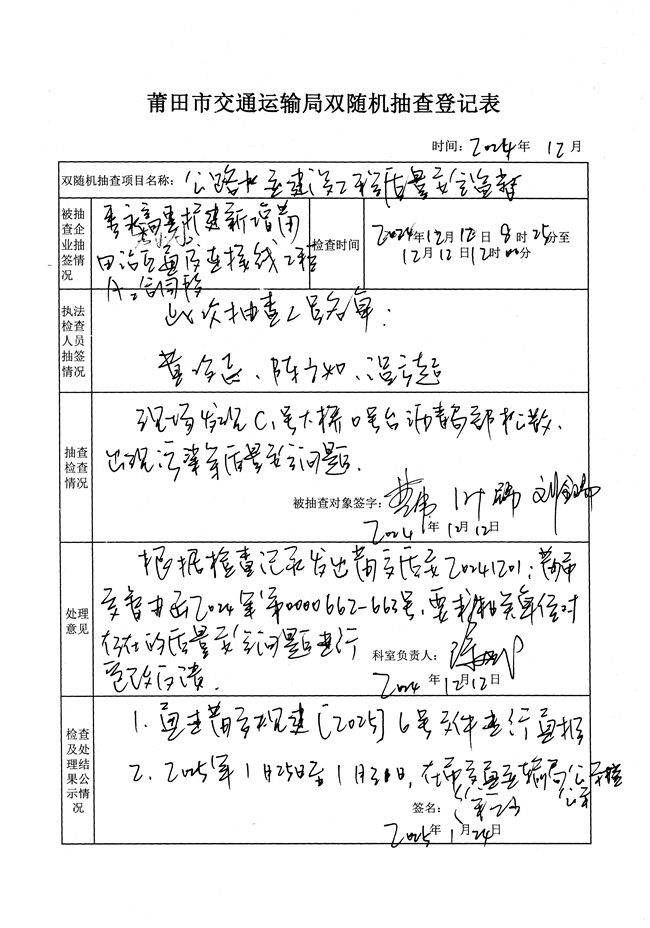 莆田市交通运输局双随机抽查登记表
时间：2024年 12月
双随机抽查项目名称：公路水运建设工程质量安全监督
被抽查企业抽签情况
田冶互通及连接线工程
检查时间
2024年12月12日9时25分至
12月12日12时00分
执法检查人员抽签情况
此次抽查人员名单：
抽查检查情况
现场发现C1号大桥0号台沥青局部松散、
出现污染等质量安全问题.
被抽查对象签字：
2024年12月12日
处理意见
根据检查记录发出莆交质安20241201；莆市
交智办函2024年第0000662-663号，要求相关单位对
存在的质量安全问题进行
整改回复.
科室负责人：
2024年12月12日
检查及处理结果公示情况
1. 通过莆交规建〔2025〕6号文件进行通报
2. 2025年1月25日至1月31日，在市交通运输局公示栏
公示
签名：
2025年1月24日